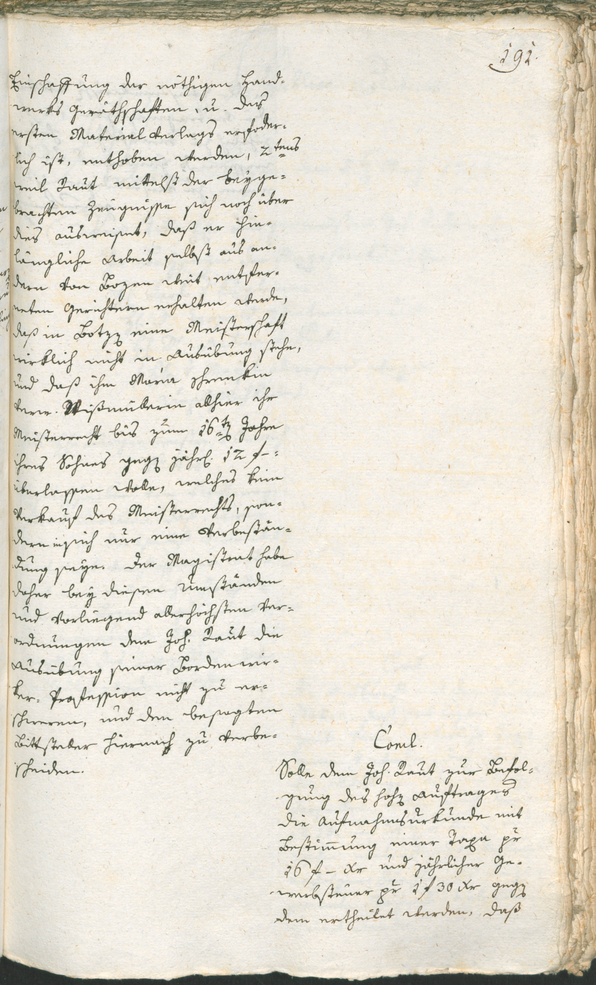 191.
Einschaffung der nöthigen Hand-
werks Geräthschaften, u. des
ersten Material Verlags erfoder-
lich ist, enthoben werden, 2tens
weil Raut mittelst der beyge-
brachten Zeugnisse sich noch über
dies ausweiset, daß er hin-
längliche Arbeit selbst aus an-
dern von Bozen weit entfer-
neten Gerichtern erhalten werde,
daß in Botzen eine Meisterschaft
wirklich nicht in Ausübung stehe,
und daß ihm Maria
verw. allhier ihr
Meisterrecht bis zum 16ten Jahre
ihres Sohnes gegen jährl. 12 f -
überlassen wolle, welches kein
Verkauf des Meisterrechts, son-
dern eigentlich nur eine Verbestän-
dung seye. Der Magistrat habe
daher bey diesen Umständen
und vorliegend allerhöchsten Ver-
ordnungen dem Joh. Raut die
Ausübung seiner Bordenwir-
ker-Profession nicht zu er-
schweren, und den besagten
Bittsteller hiernach zu verbe-
scheiden.
Concl.
Solle dem Joh. Raut zur Befol-
gung des hohen Auftrages
die Aufnahmsurkunde mit
Bestimmung einer Taxa pr
16 f - xr und jährlicher Ge-
werbsteuer pr 1 f 30 xr gegen
dem ertheilet werden, daß